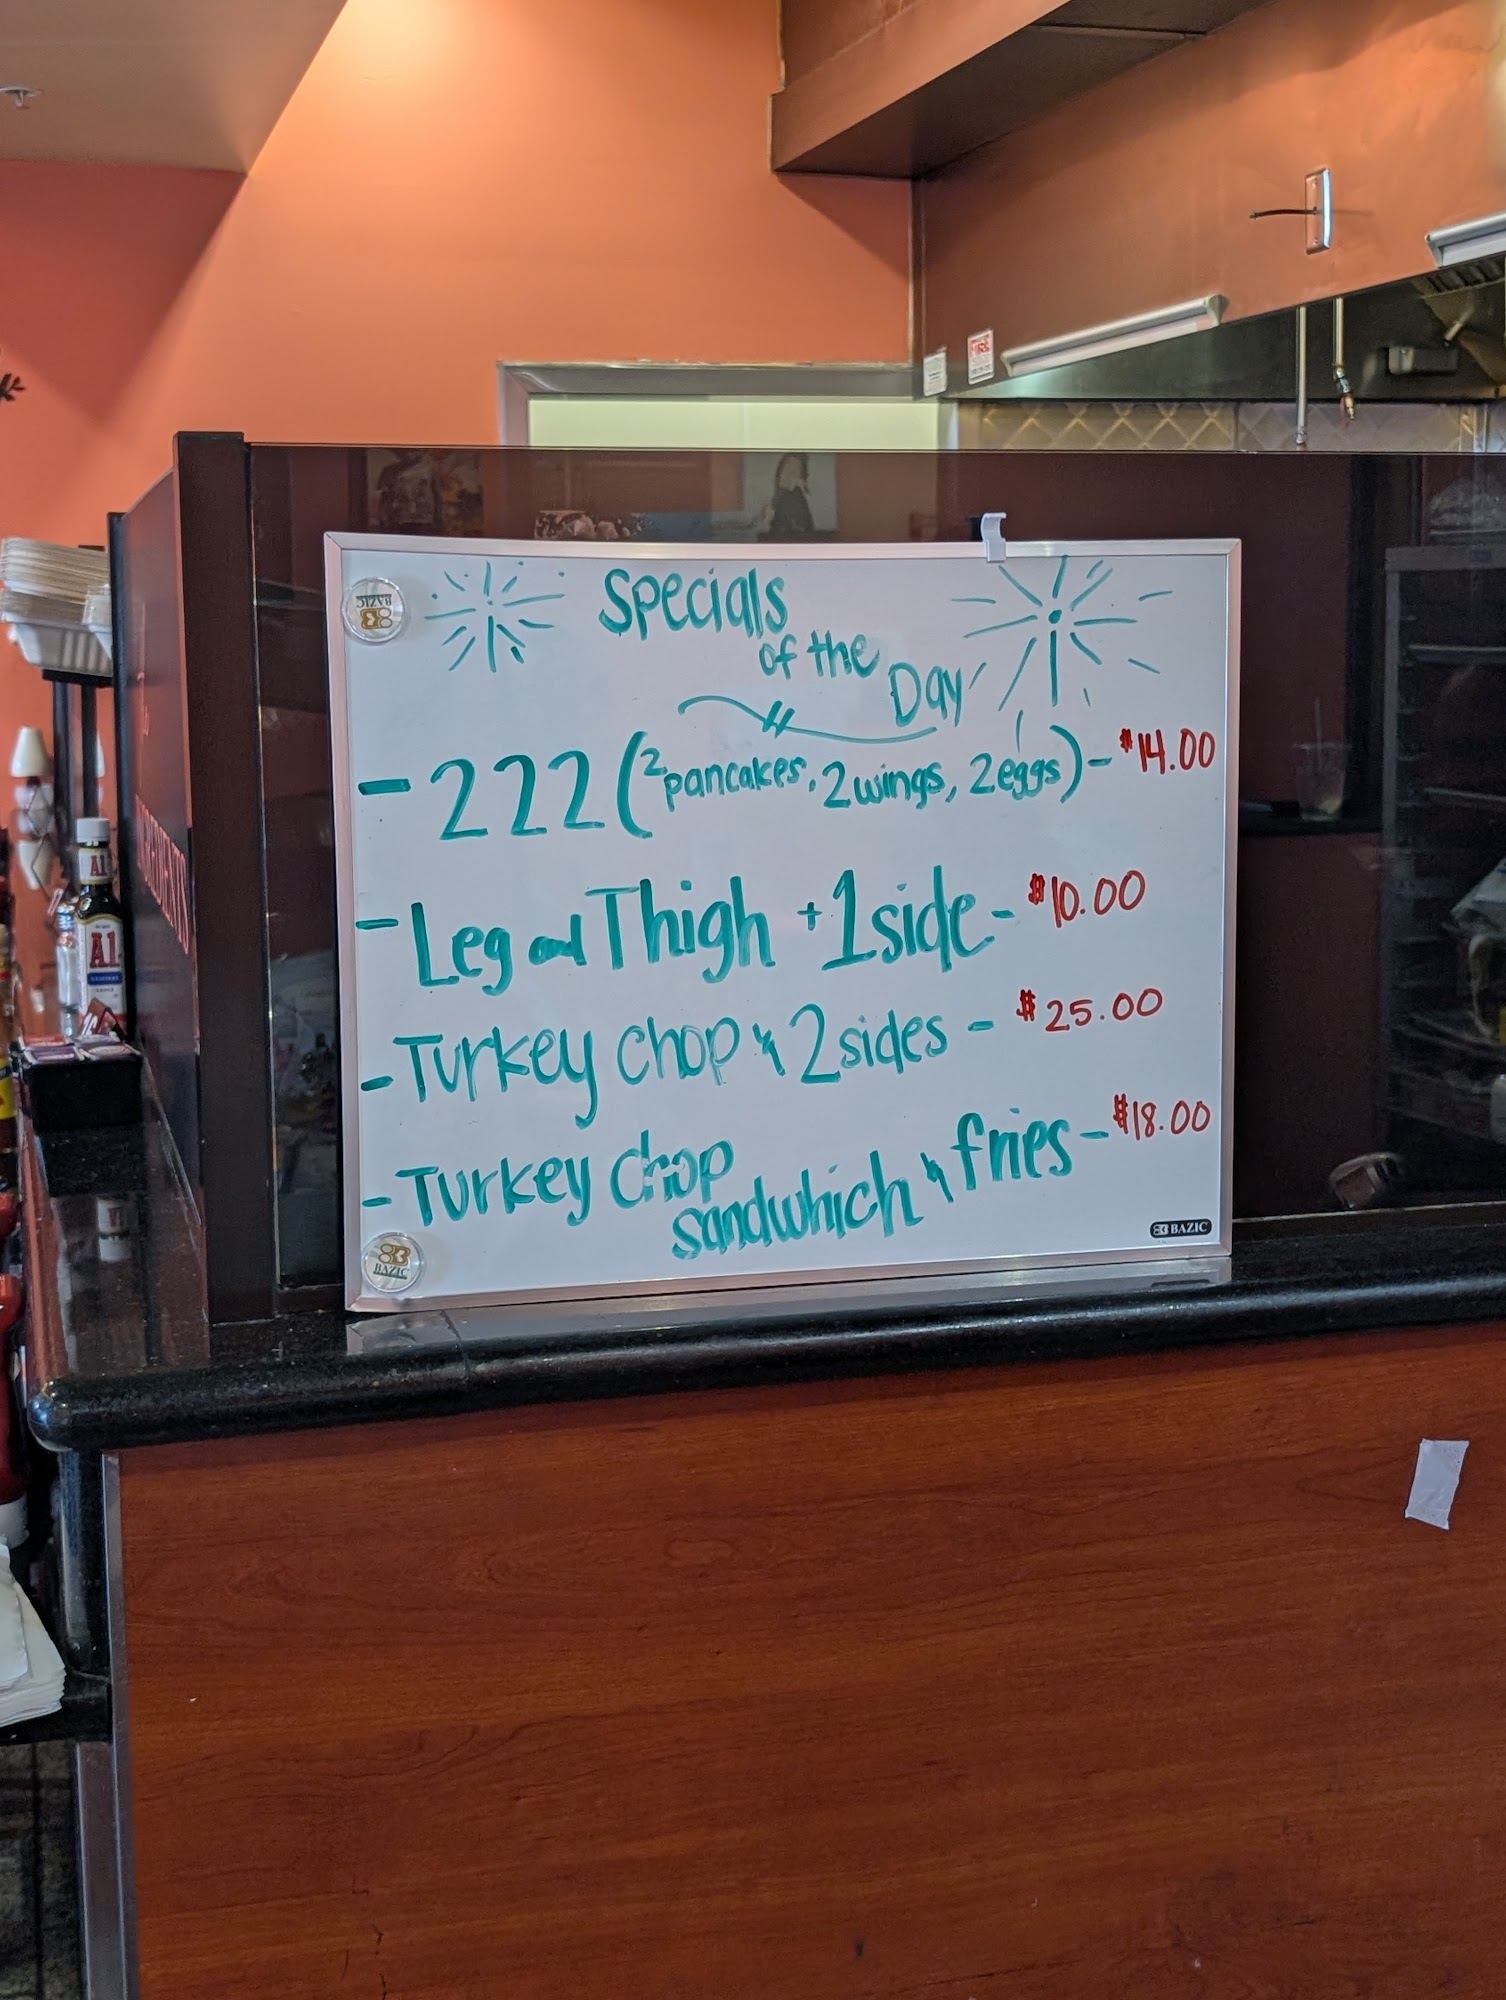 Specials
of the
Day
- 222 (2 pancakes, 2 wings, 2 eggs) - $14.00
- Leg and Thigh + 1 side - $10.00
- Turkey Chop & 2 sides - $25.00
- Turkey Chop
sandwhich & fries - $18.00
BAZIC
BAZIC
BAZIC
A1
A1